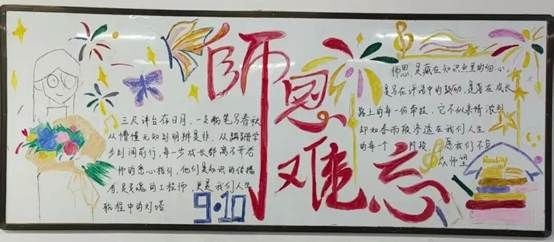 師恩难忘
三尺讲台存日月,一支粉笔写春秋
从懵懂无知到明辨是非,从蹒跚学
步到阔步前行,每一步成长都离不开老
师的悉心指引,他们是知识的传播
者,是灵魂的工程师,更是我们人生
航程中的灯塔
9·10
师恩是藏在知识点里的细心
是写在评语中的鼓励,是落在成长
路上的每一份牵挂,它不似亲情浓烈
却如春雨般渗透在我们人生
的每个 阶段,愿我们不负
众师望
Reading